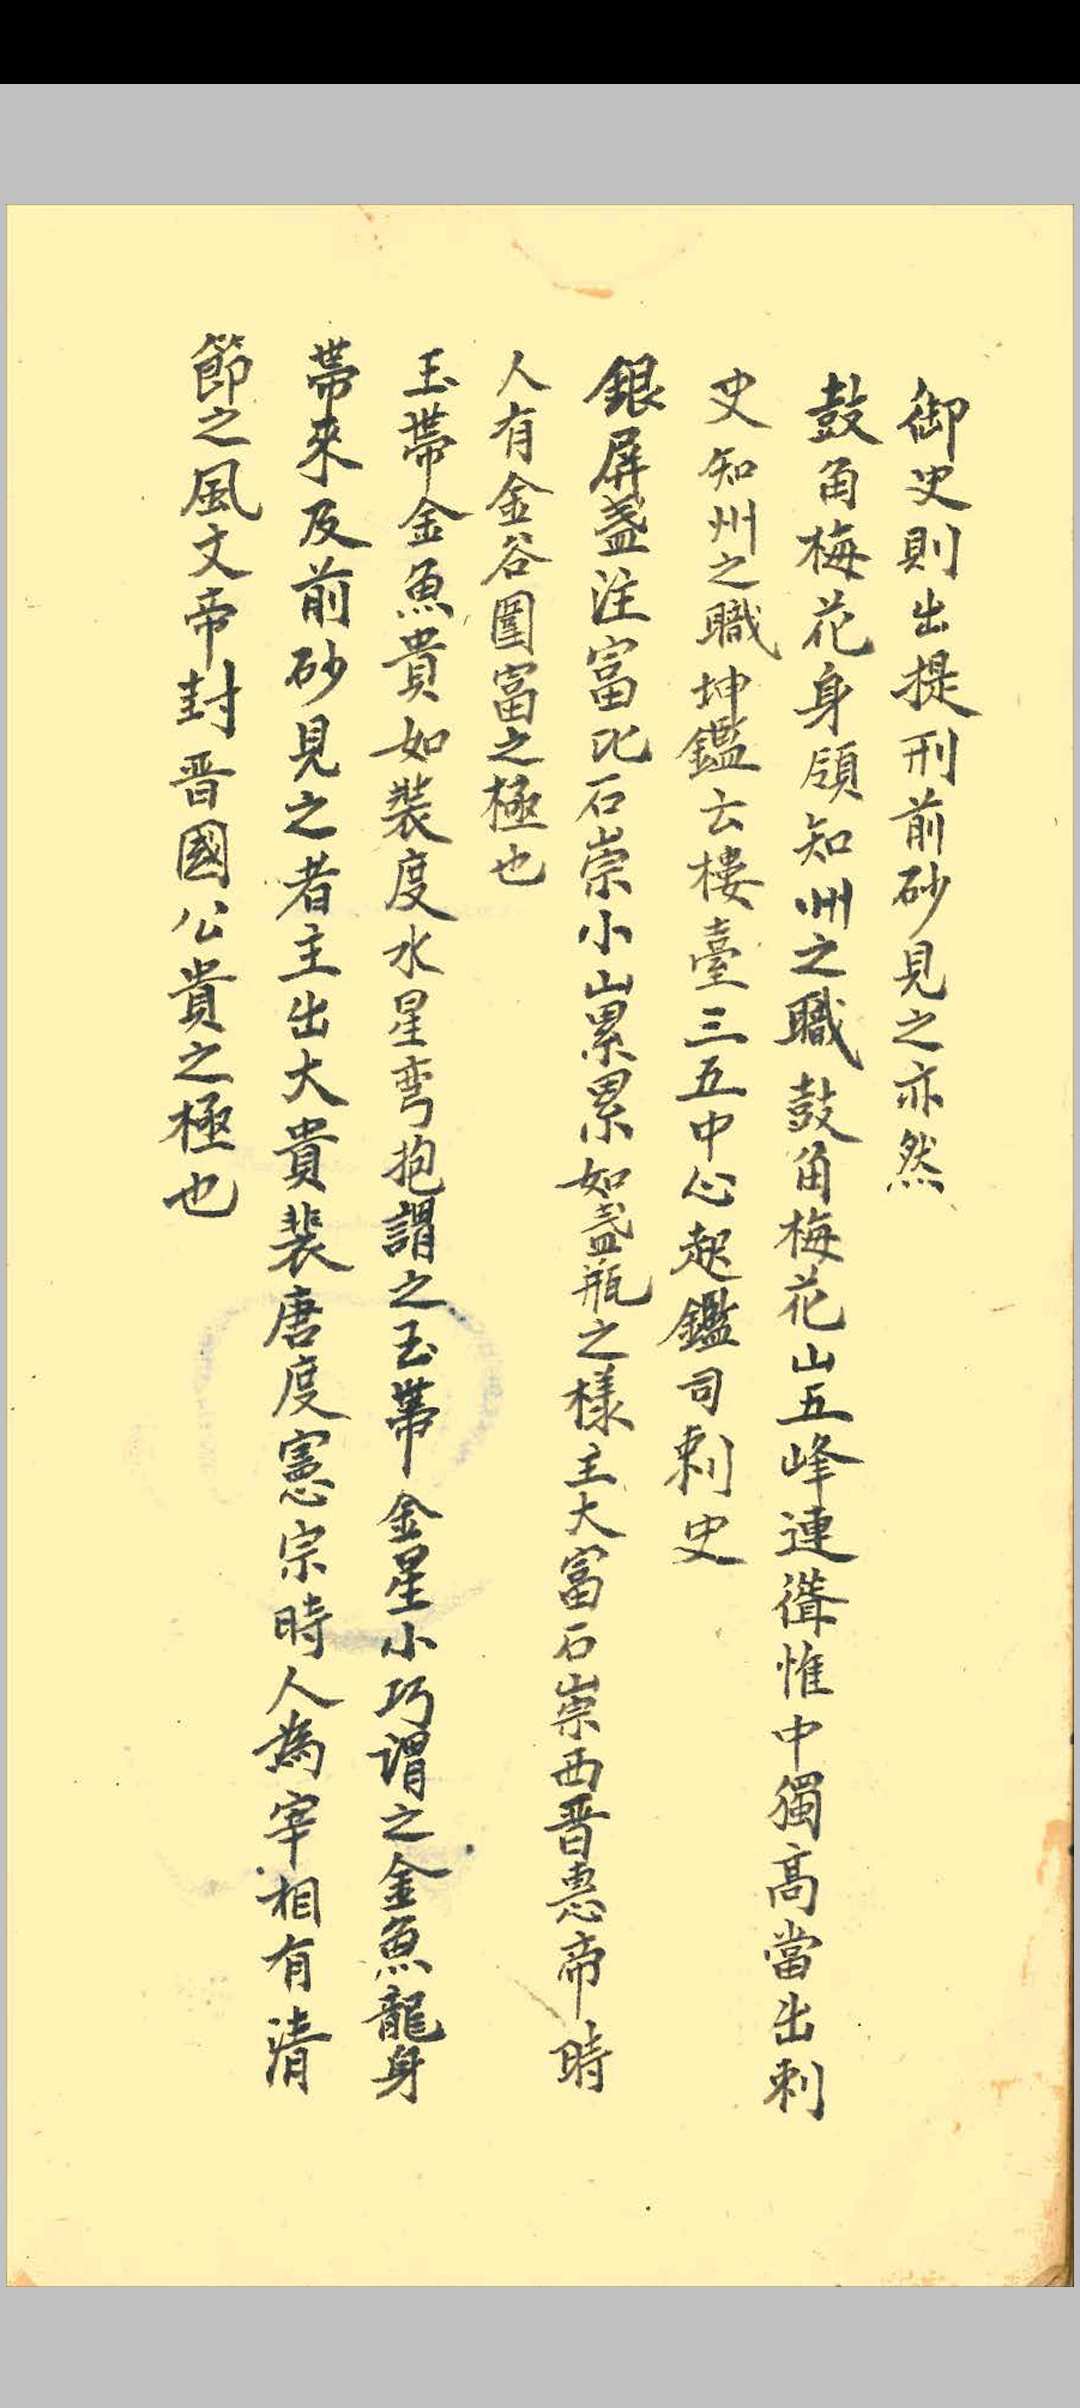 御史則出提刑前砂見之亦然
鼓角梅花身領知州之職鼓角梅花山五峰連聳惟中獨高當出刺
史知州之職坤鑑云樓臺三五中心起鑑司刺史
銀屏盞注富比石崇小山累累如盞瓶之樣主大富石崇西晋惠帝時
人有金谷園富之極也
玉帶金魚貴如裴度水星弯抱謂之玉帶金星小巧謂之金魚龍身
帶來及前砂見之者主出大貴裴唐度憲宗時人為宰相有清
節之風文帝封晋國公貴之極也